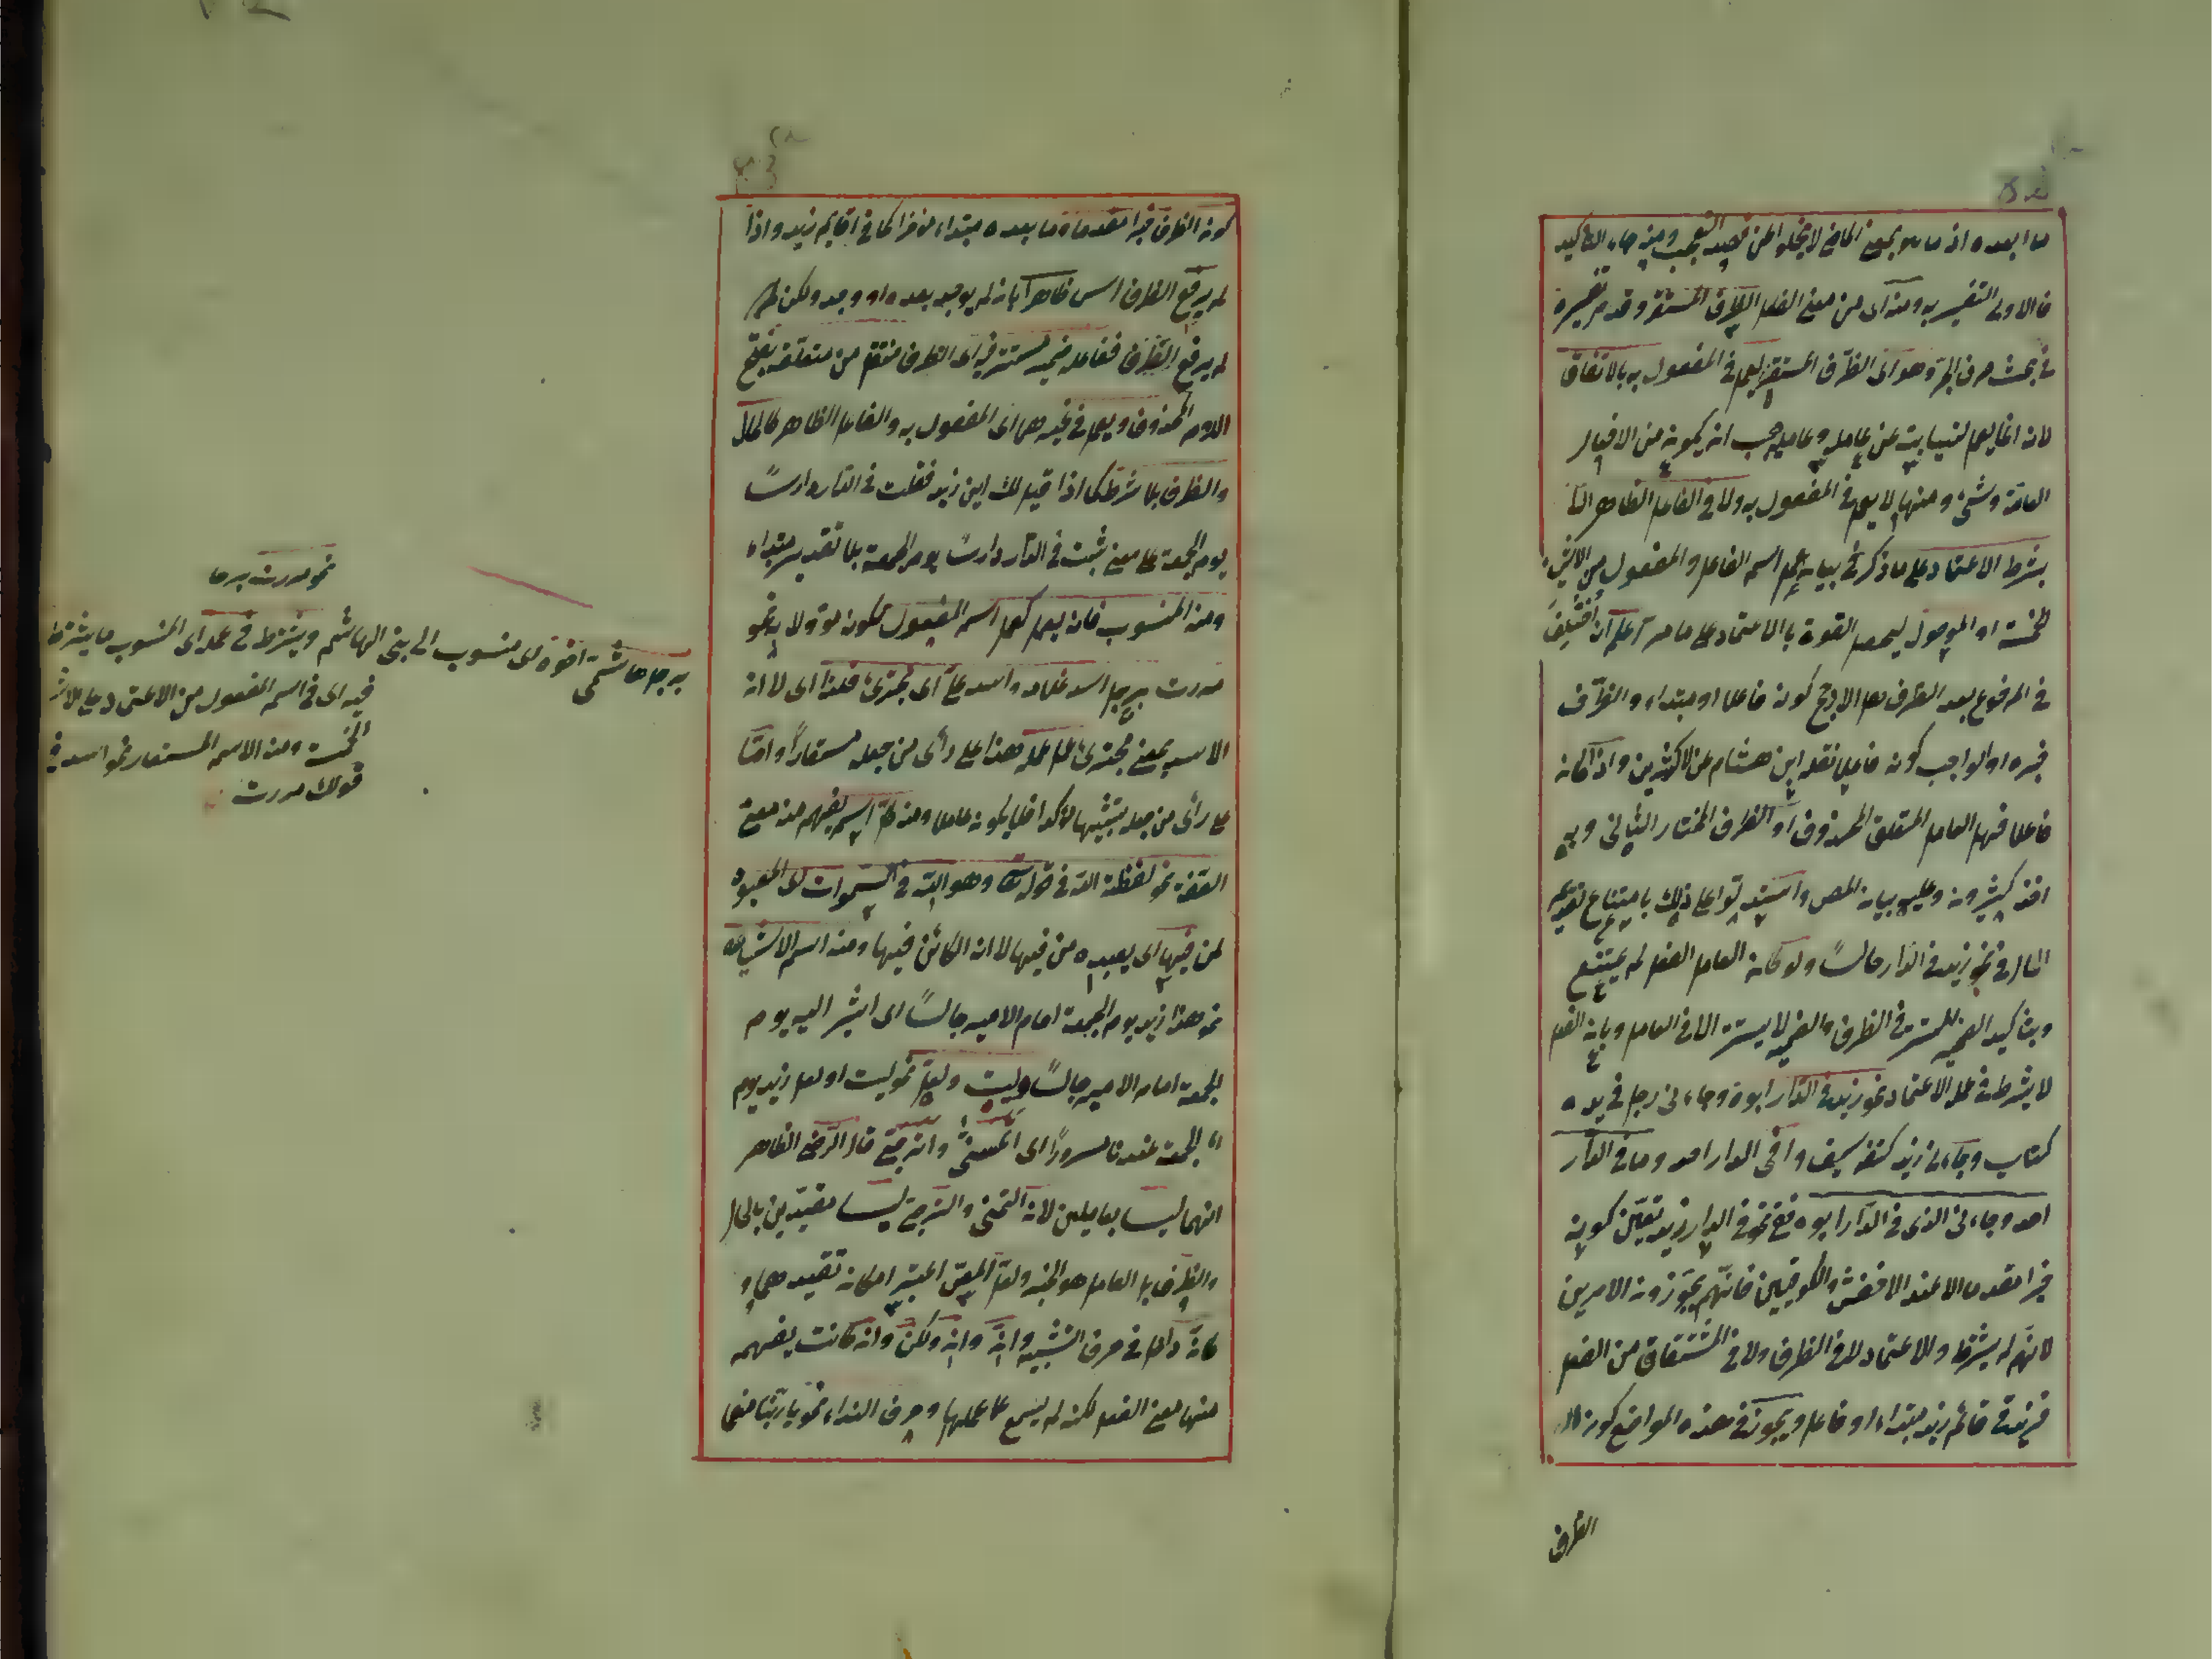 فالاولى التفسير به ومنه اى من معنى الفعل الظرف المستقر وقد مر تفسيره
فى بحث حرف الجر وهو اى الظرف المستقر لا يعمل فى المفعول به بالاتفاق
لانه انما يعمل لنيابته عن عامله وعامله يجب ان يكون من الافعال
العامة وشئ منها لا يعمل فى المفعول به ولا فى الفاعل الظاهر الا
بشرط الاعتماد على ما ذكر فى بيان عمل اسم الفاعل والمفعول من الاشياء
الخمسة او الموصول ليحصل القوة بالاعتماد على ما مر اعلم ان اختلف
فى المرفوع بعد الظرف هل الارجح كونه فاعلا او مبتداء والظرف
خبره او الواجب كونه فاعلا نقله ابن هشام عن الاكثرين واذا كان
فاعلا فهل العامل المتعلق المحذوف او الظرف المختار الثانى وبه
اخذ كثيرون وعليه بيان المص واستدلوا على ذلك بامتناع تقديم
الحال فى نحو زيد فى الدار جالسًا ولو كان العامل الفعل لم يمتنع
وبتأكيد الضمير المستتر فى الظرف والضمير لا يستتر الا فى العامل وبان الفعل
لا يشترط فى عمله الاعتماد نحو زيد فى الدار ابوه وجاءنى رجل فى يده
كتاب وجاءنى زيد على كتفه سيف وا فى الدار احد وما فى الدار
احد وجاءنى الذى فى الدار ابوه نحو فى الدار زيد تعين كونه
خبرا مقدما الا عند الاخفش والكوفيين فانهم يجوزون الامرين
لانهم لم يشترطوا الاعتماد لا فى الظرف ولا فى المشتقات من الفعل
فزيد فى قائم زيد مبتداء او فاعل ويجوز فى هذه المواضع كون
الظرف
كون الظرف خبرا مقدما وما بعده مبتداء مؤخرا كما فى اقائم زيد واذا
لم يرفع الظرف اسما ظاهرا بان لم يوجد بعده او وجد ولكن
لم يرفع الظرف ففاعله ضمير مستتر فيه اى الظرف منتقل من متعلقه بفتح
اللام المحذوف ويعمل فى غيرهما اى المفعول به والفاعل الظاهر كالحال
والظرف بلا شرط كما اذا قيل لك اين زيد فقلت فى الدار دارسًا
يوم الجمعة على معنى ثبت فى الدار دارسًا يوم الجمعة بلا تقدير مبتداء
ومنه المنسوب فانه يعمل كعمل اسم المفعول لكونه مؤولا به نحو
مررت برجل اسد غلامه واسد على اى مجترئ فلذا اى لان
الاسد بمعنى مجترئ عمل عمله هذا على رأى من جعله مستعارًا واما
على رأى من جعله تشبيها فلا يكون عاملا ومنه كل اسم يفهم منه معنى
الصفة نحو لفظة الله فى قوله تعالى وهو الله فى السموات اى المعبود
لمن فيها اى يعبده من فيها لا انه الكائن فيها ومنه اسم الاشارة
نحو هذا زيد يوم الجمعة امام الامير جالسًا اى اشير اليه يوم
الجمعة امام الامير جالسًا وليت ولعل نحو ليت او لعل زيد يوم
الجمعة عندنا مسرورًا اى اتمنى وانه ترجى قال الرضى الظاهر
انهما ليسا بعاملين لان التمنى والترجى ليسا مقيدين بالحال
والظرف بل العامل هو الخبر ولعل المص اعتبر امكان تقييدهما و
كأن داخل فى حرف التشبيه وان وان ولكن وان كانت يفهم
منها معنى الفعل لكنه لم يسمع عملها وحرف النداء نحو يا ربنا منعما
نحو مررت برجل
برجل هاشمى اخوه اى منسوب الى بنى الهاشم ويشترط فى عمله اى المنسوب ما يشترط
فيه اى فى اسم المفعول من الاعتماد على الاشياء
الخمسة ومنه الاسم المستعار نحو اسد فى
قولك مررت